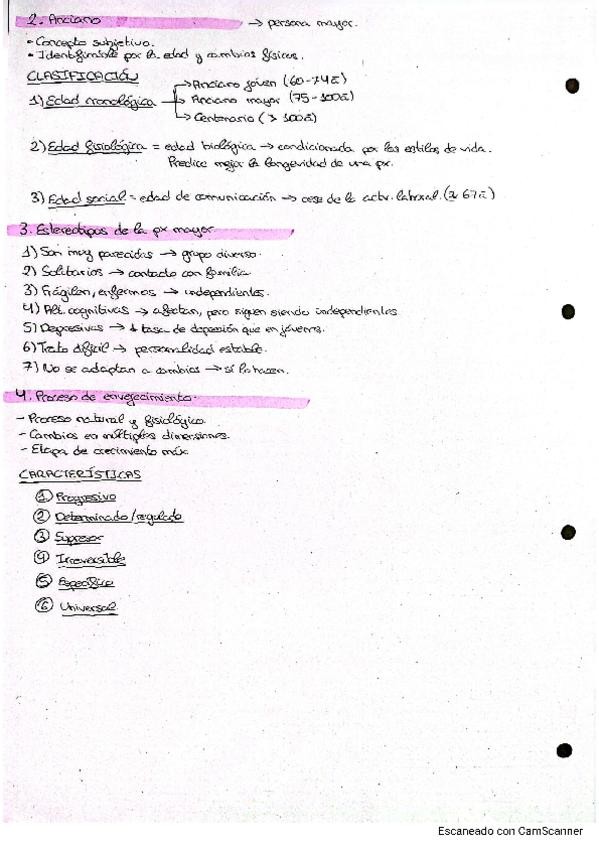 2. Anciano → persona mayor.
- Concepto subjetivo.
- Identificable por la edad y cambios físicos.
CLASIFICACIÓN
1) Edad cronológica → Anciano joven (60-74a)
→ Anciano mayor (75-100a)
→ Centenario (> 100a)
2) Edad fisiológica = edad biológica → condicionada por los estilos de vida.
Predice mejor la longevidad de una px.
3) Edad social = edad de comunicación → cese de la actv. laboral. (≥ 67a)
3. Estereotipos de la px mayor
1) Son muy parecidas → grupo diverso.
2) Solitarios → contacto con familia
3) Frágiles, enfermos → independientes.
4) Alt. cognitivas → afectan, pero siguen siendo independientes
5) Depresivas → ↓ tasa de depresión que en jóvenes.
6) Trato difícil → personalidad estable.
7) No se adaptan a cambios → sí lo hacen.
4. Proceso de envejecimiento.
- Proceso natural y fisiológico
- Cambios en múltiples dimensiones.
- Etapa de crecimiento máx
CARACTERÍSTICAS
① Progresivo
② Determinado/regulado
③ Supresor
④ Irreversible
⑤ Específico
⑥ Universal
Escaneado con CamScanner